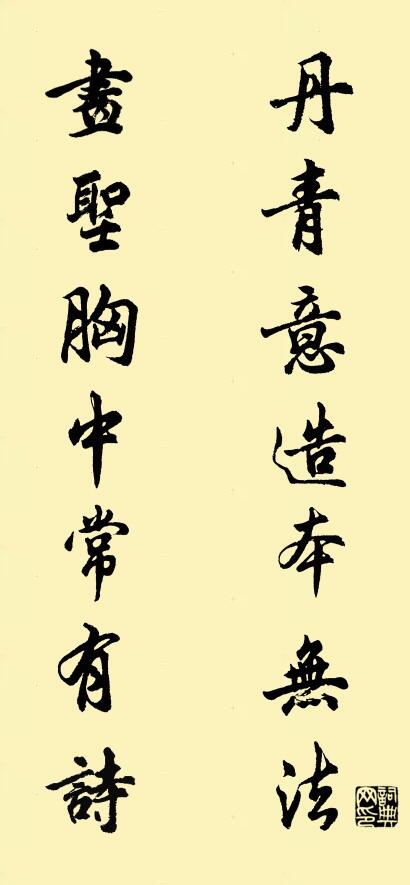 丹青意造本無法
畫聖胸中常有詩
詞典网印